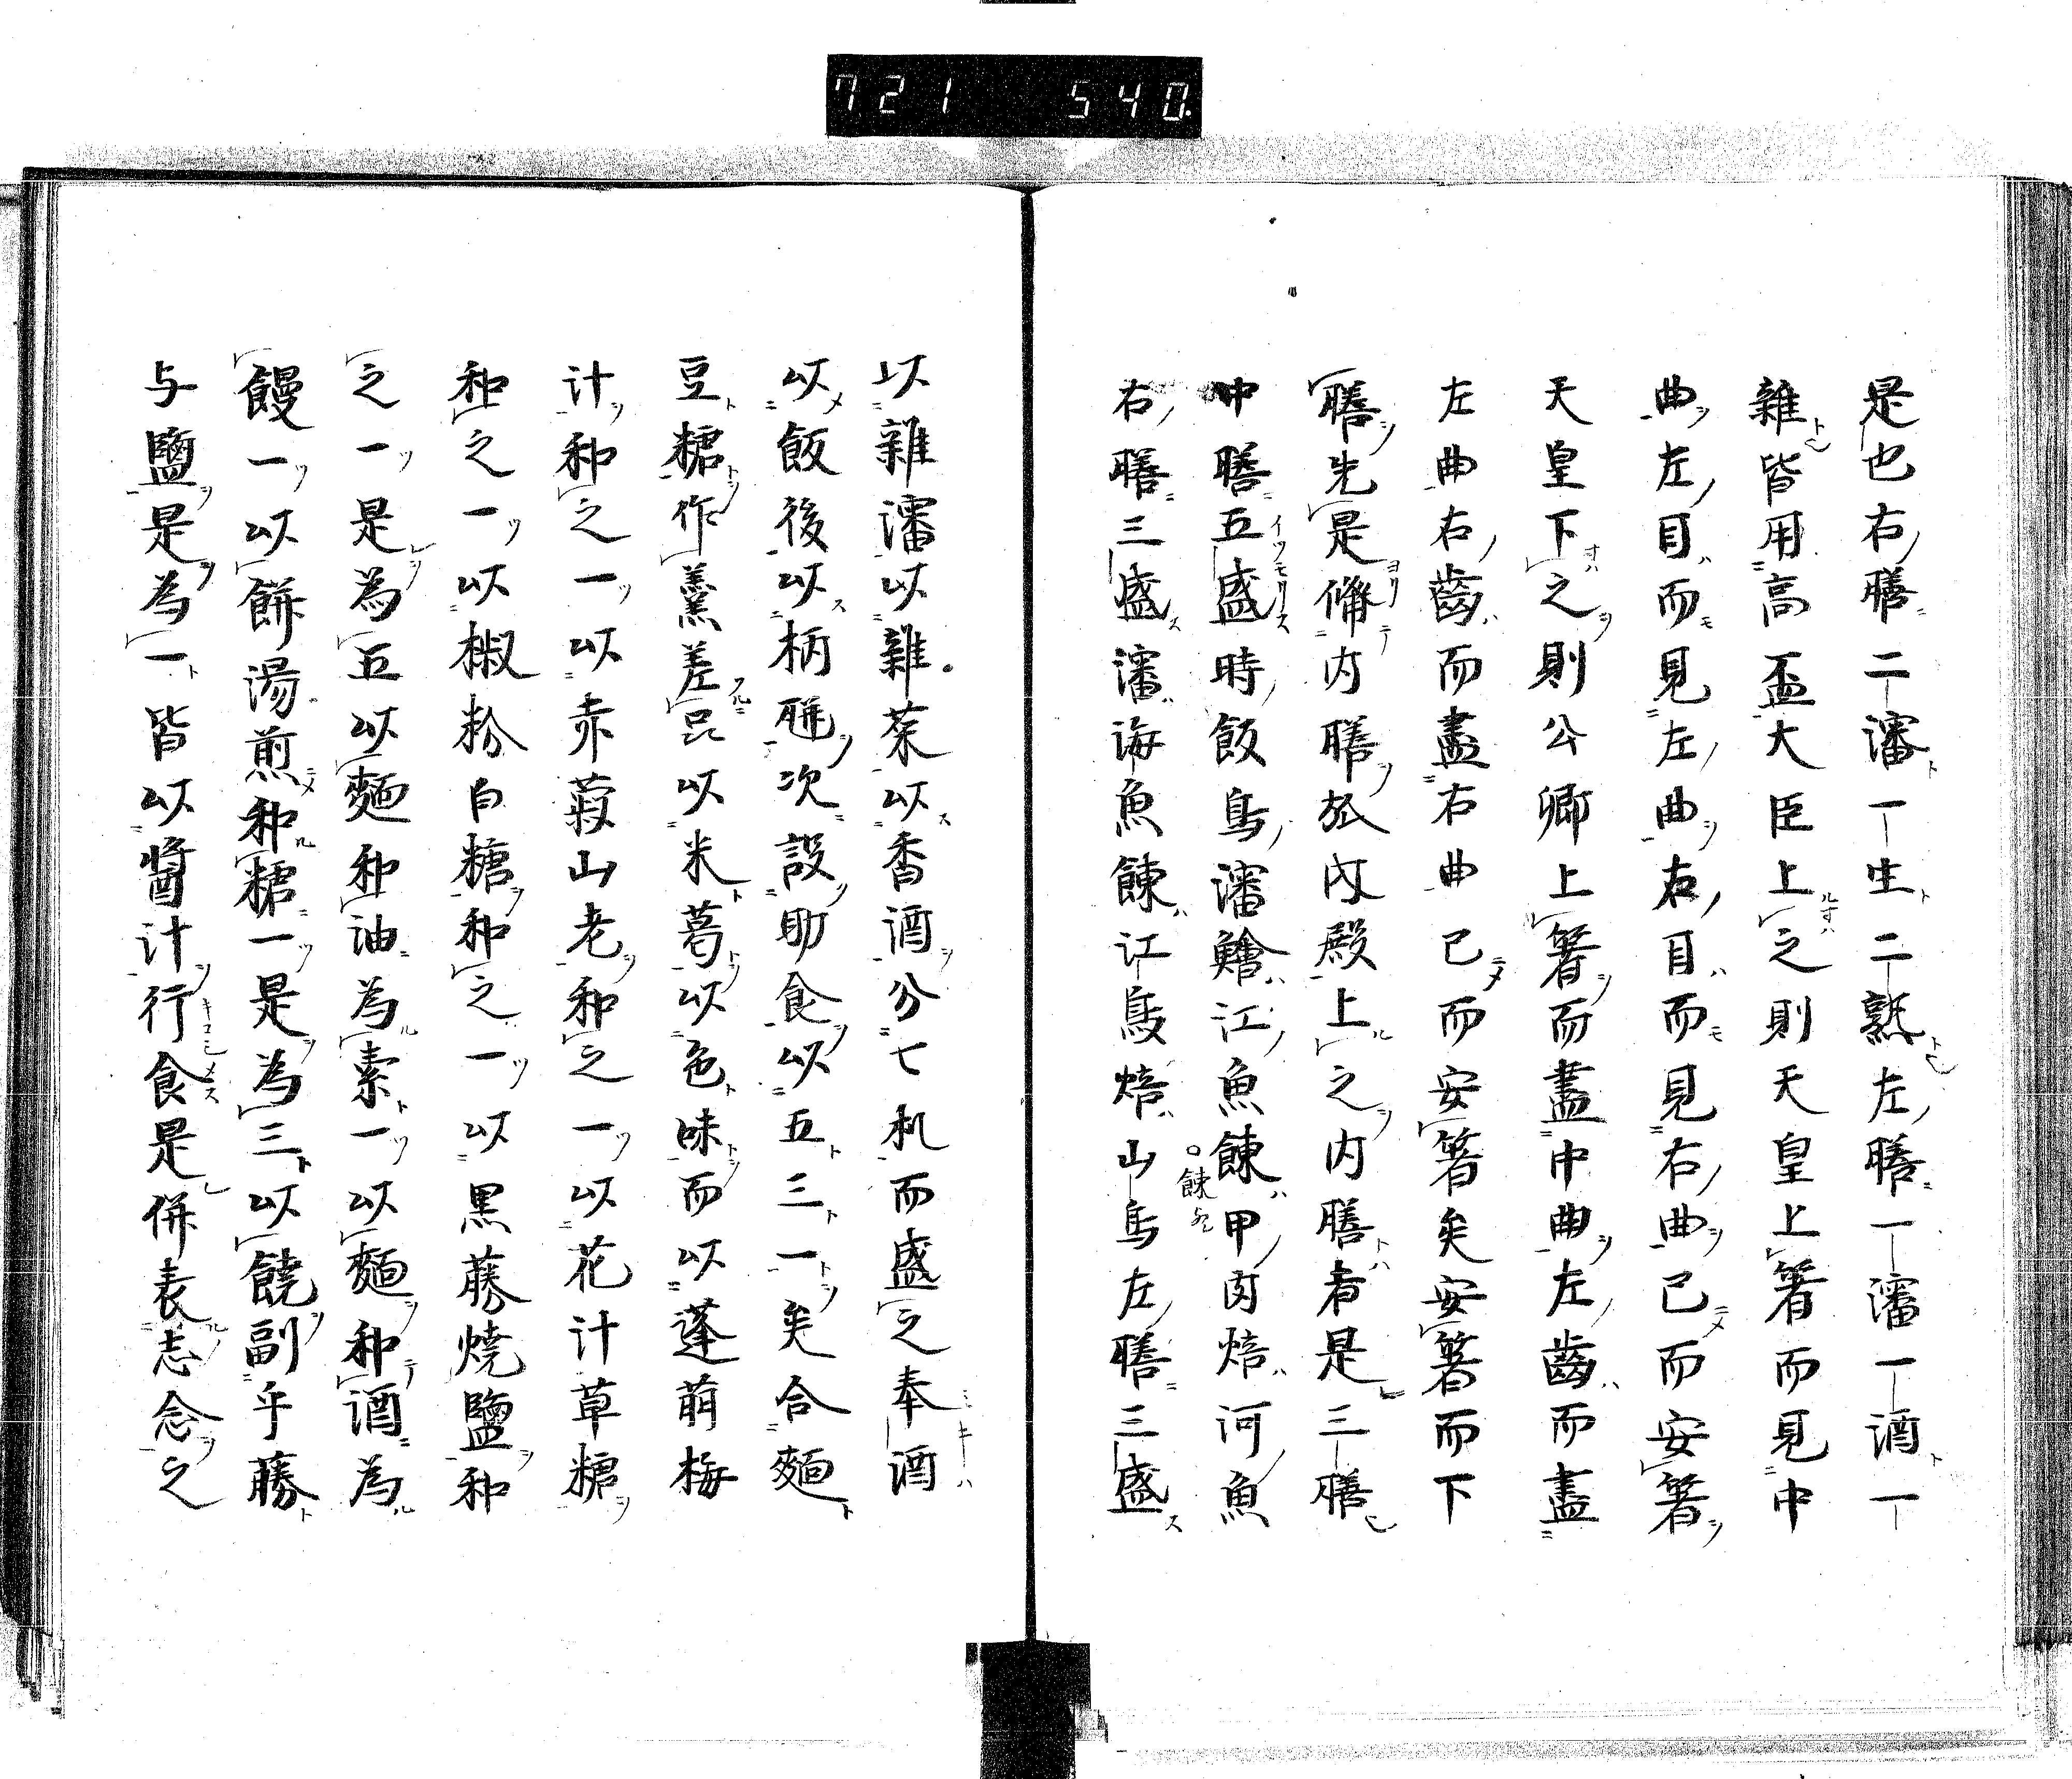 721 540.
是也右膳二瀋一生二熟左膳一瀋一酒一
雜皆用高盃大臣上之則天皇上箸而見中
曲左目而見左曲右目而見右曲已而安箸
天皇下之則公卿上箸而盡中曲左齒而盡
左曲右齒而盡右曲已而安箸矣安箸而下
膳先是備内膳於内殿上之内膳者是三膳
中膳五盛時飯鳥瀋鱠江魚餗甲肉焙河魚
右膳三盛瀋海魚餗江鳥焙山鳥左膳三盛
以雜瀋以雜菜以香酒分七机而盛之奉酒
以飯後以柄䏈次設助食以五三一矣合麵
豆糖作羹差品以米葛以色味而以蓬萠梅
計和之一以赤蔱山老和之一以花計草糖
和之一以椒粉白糖和之一以黒藤焼鹽和
之一是為五以麵和油為素一以麵和酒為
饅一以餅湯煎和糖一是為三以饒副乎藤
与鹽是為一皆以醤汁行食是併表志念之